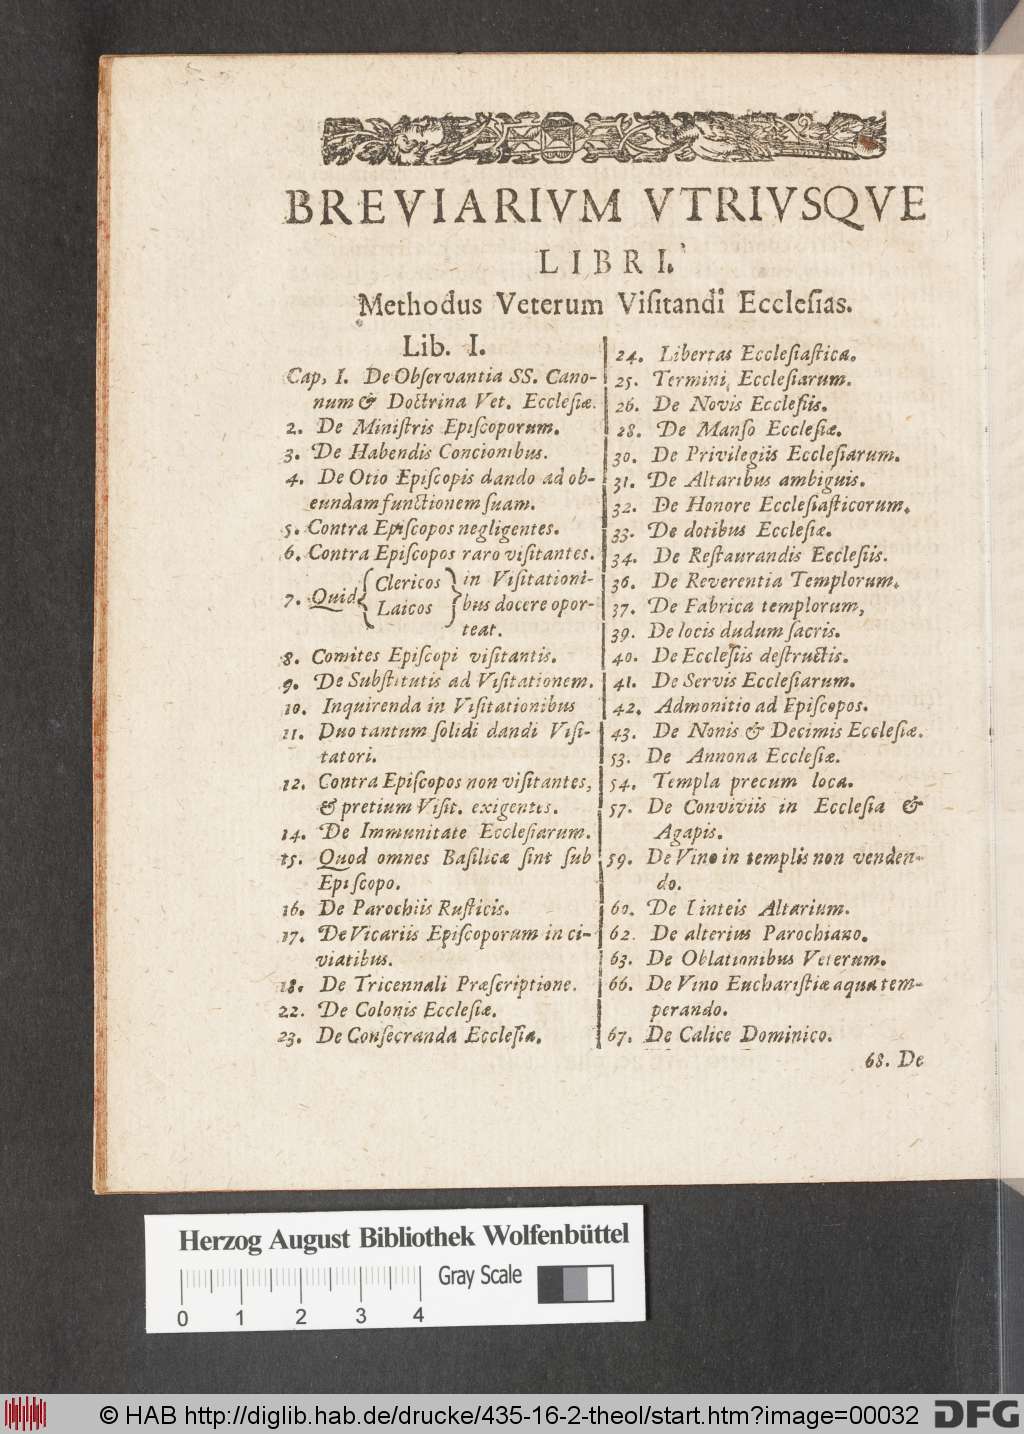 BREVIARIVM VTRIVSQVE
LIBRI.
Methodus Veterum Viſitandi Eccleſias.
Lib. I.
Cap, I. De Obſervantia SS. Cano-
num & Doctrina Vet. Eccleſiæ.
2. De Miniſtris Epiſcoporum.
3. De Habendis Concionibus.
4. De Otio Epiſcopis dando ad ob-
eundam functionem ſuam.
5. Contra Epiſcopos negligentes.
6. Contra Epiſcopos raro viſitantes.
7. Quid { Clericos } in Viſitationi-
{ Laicos } bus docere opor-
teat.
8. Comites Epiſcopi viſitantis.
9. De Subſtitutis ad Viſitationem.
10. Inquirenda in Viſitationibus
11. Duo tantum ſolidi dandi Viſi-
tatori.
12. Contra Epiſcopos non viſitantes,
& pretium Viſit. exigentes.
14. De Immunitate Eccleſiarum.
15. Quod omnes Baſilicæ ſint ſub
Epiſcopo.
16. De Parochiis Ruſticis.
17. De Vicariis Epiſcoporum in ci-
viatibus.
18. De Tricennali Præſcriptione.
22. De Colonis Eccleſiæ.
23. De Conſecranda Eccleſia.
24. Libertas Eccleſiaſtica.
25. Termini Eccleſiarum.
26. De Novis Eccleſiis.
28. De Manſo Eccleſiæ.
30. De Privilegiis Eccleſiarum.
31. De Altaribus ambiguis.
32. De Honore Eccleſiaſticorum.
33. De dotibus Eccleſiæ.
34. De Reſtaurandis Eccleſiis.
36. De Reverentia Templorum.
37. De Fabrica templorum,
39. De locis dudum ſacris.
40. De Eccleſiis deſtructis.
41. De Servis Eccleſiarum.
42. Admonitio ad Epiſcopos.
43. De Nonis & Decimis Eccleſiæ.
53. De Annona Eccleſiæ.
54. Templa precum loca.
57. De Conviviis in Eccleſia &
Agapis.
59. De Vino in templis non venden-
do.
60. De Linteis Altarium.
62. De alterius Parochiano.
63. De Oblationibus Veterum.
66. De Vino Euchariſtiæ aqua tem-
perando.
67. De Calice Dominico.
68. De
Herzog August Bibliothek Wolfenbüttel
Gray Scale
0 1 2 3 4
© HAB http://diglib.hab.de/drucke/435-16-2-theol/start.htm?image=00032
DFG